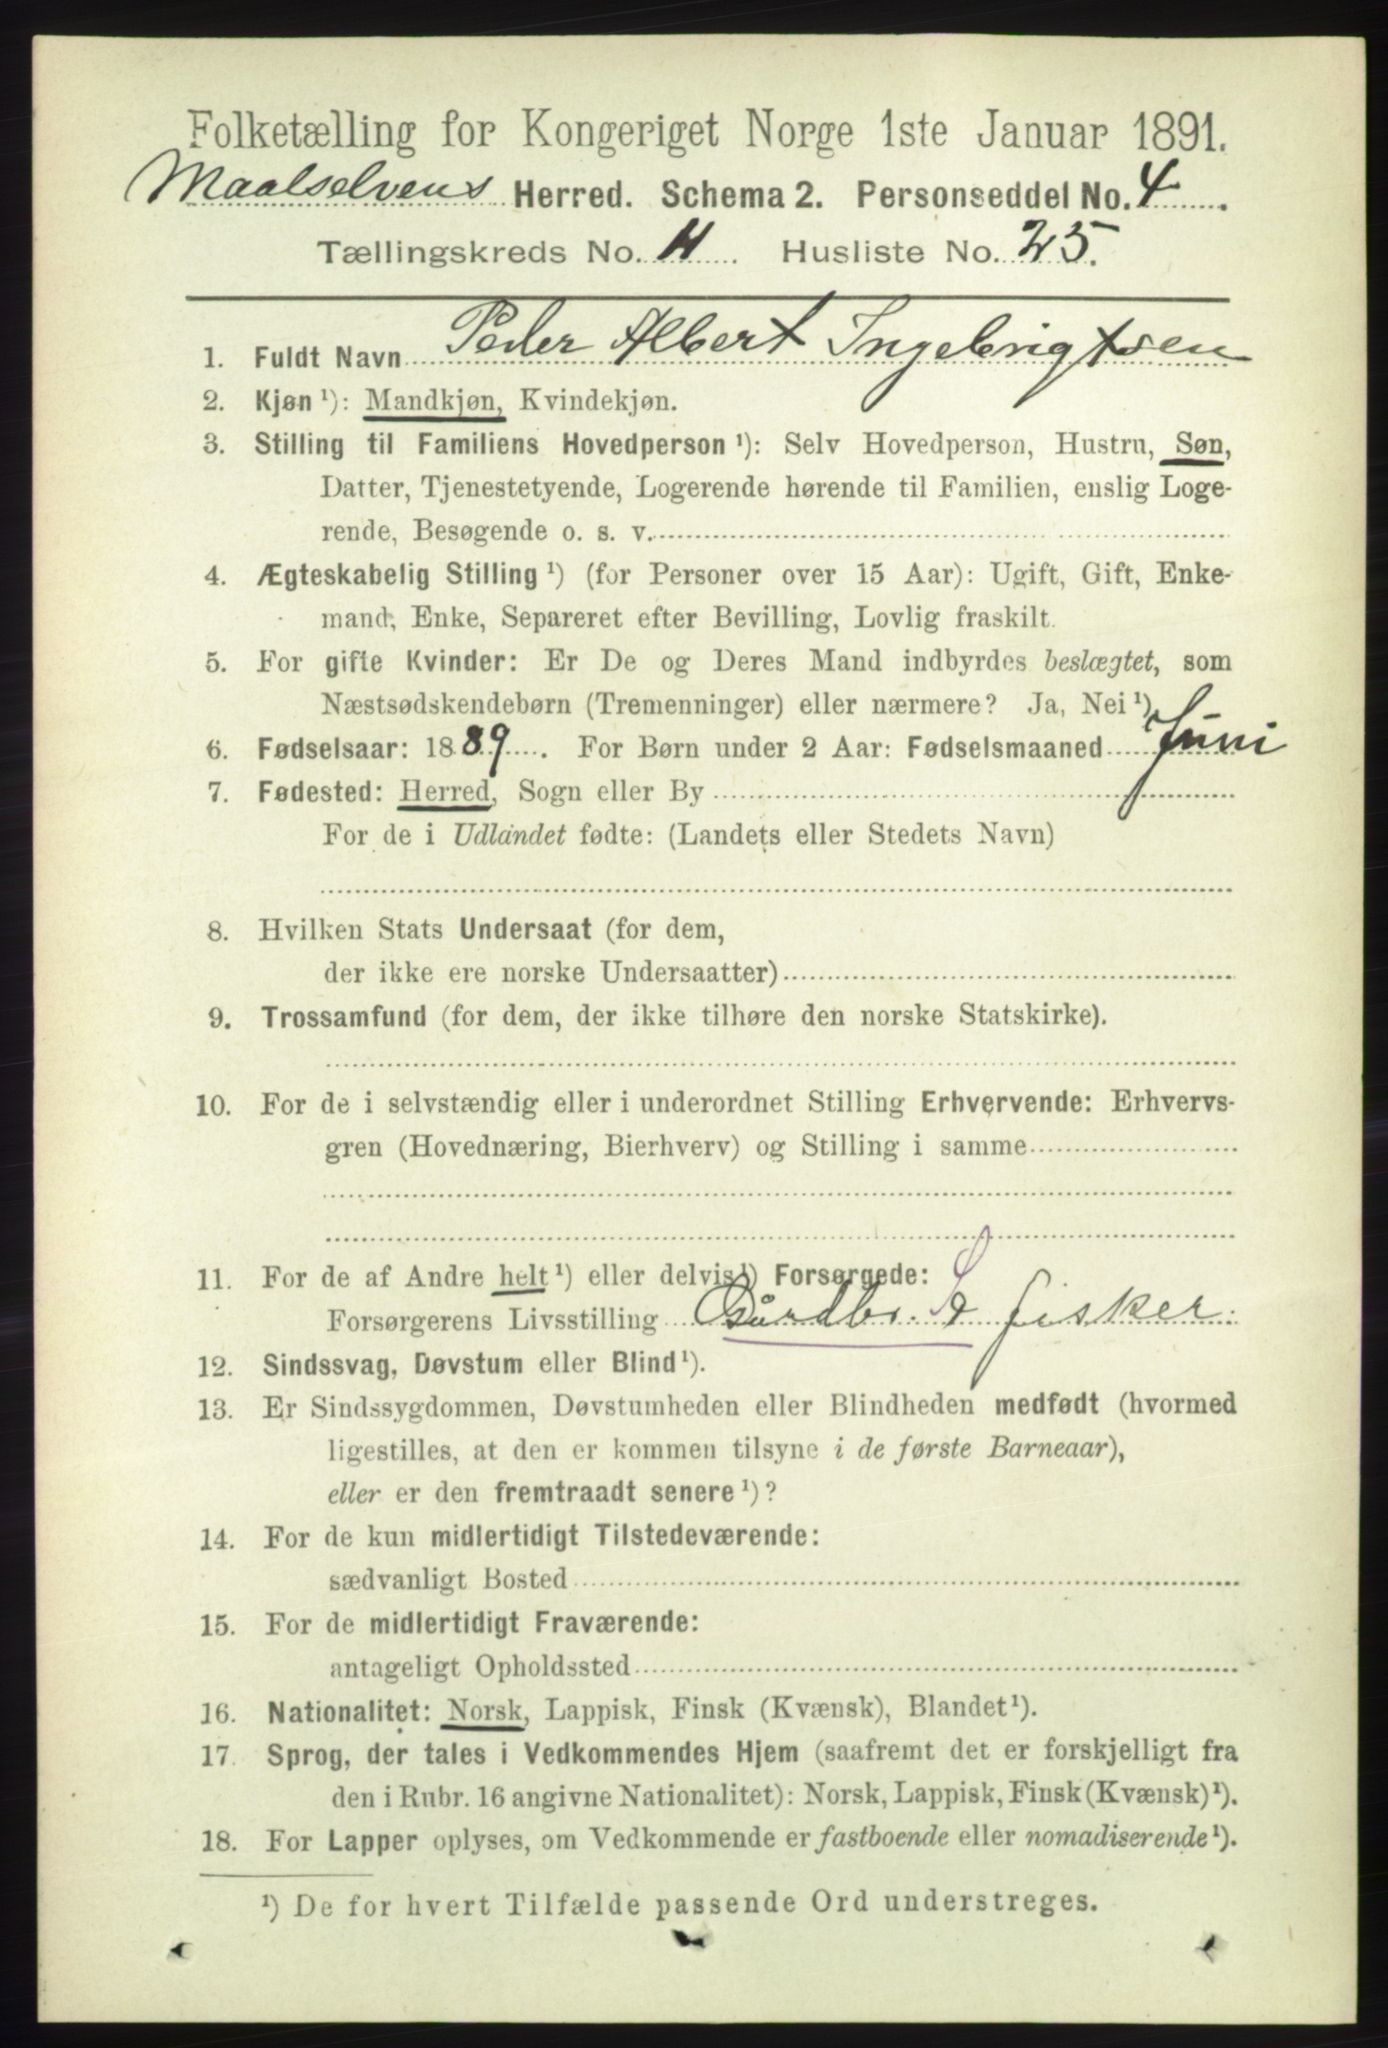 Folketælling for Kongeriget Norge 1ste Januar 1891.
Maalselvens Herred. Schema 2. Personseddel No. 4
Tællingskreds No. H Husliste No. 25.
1. Fuldt Navn Peder Albert Ingebrigtsen
2. Kjøn ¹): Mandkjøn, Kvindekjøn.
3. Stilling til Familiens Hovedperson ¹): Selv Hovedperson, Hustru, Søn,
Datter, Tjenestetyende, Logerende hørende til Familien, enslig Loge-
rende, Besøgende o. s. v.
4. Ægteskabelig Stilling ¹) (for Personer over 15 Aar): Ugift, Gift, Enke-
mand, Enke, Separeret efter Bevilling, Lovlig fraskilt.
5. For gifte Kvinder: Er De og Deres Mand indbyrdes beslægtet, som
Næstsødskendebørn (Tremenninger) eller nærmere? Ja, Nei ¹)
6. Fødselsaar: 1889. For Børn under 2 Aar: Fødselsmaaned Juni
7. Fødested: Herred, Sogn eller By
For de i Udlandet fødte: (Landets eller Stedets Navn)
8. Hvilken Stats Undersaat (for dem,
der ikke ere norske Undersaatter)
9. Trossamfund (for dem, der ikke tilhøre den norske Statskirke).
10. For de i selvstændig eller i underordnet Stilling Erhvervende: Erhvervs-
gren (Hovednæring, Bierhverv) og Stilling i samme
11. For de af Andre helt ¹) eller delvis ¹) Forsørgede:
Forsørgerens Livsstilling Gårdbr. S & fisker.
12. Sindssvag, Døvstum eller Blind ¹).
13. Er Sindssygdommen, Døvstumheden eller Blindheden medfødt (hvormed
ligestilles, at den er kommen tilsyne i de første Barneaar),
eller er den fremtraadt senere ¹)?
14. For de kun midlertidigt Tilstedeværende:
sædvanligt Bosted
15. For de midlertidigt Fraværende:
antageligt Opholdssted
16. Nationalitet: Norsk, Lappisk, Finsk (Kvænsk), Blandet ¹).
17. Sprog, der tales i Vedkommendes Hjem (saafremt det er forskjelligt fra
den i Rubr. 16 angivne Nationalitet): Norsk, Lappisk, Finsk (Kvænsk) ¹).
18. For Lapper oplyses, om Vedkommende er fastboende eller nomadiserende ¹).
¹) De for hvert Tilfælde passende Ord understreges.